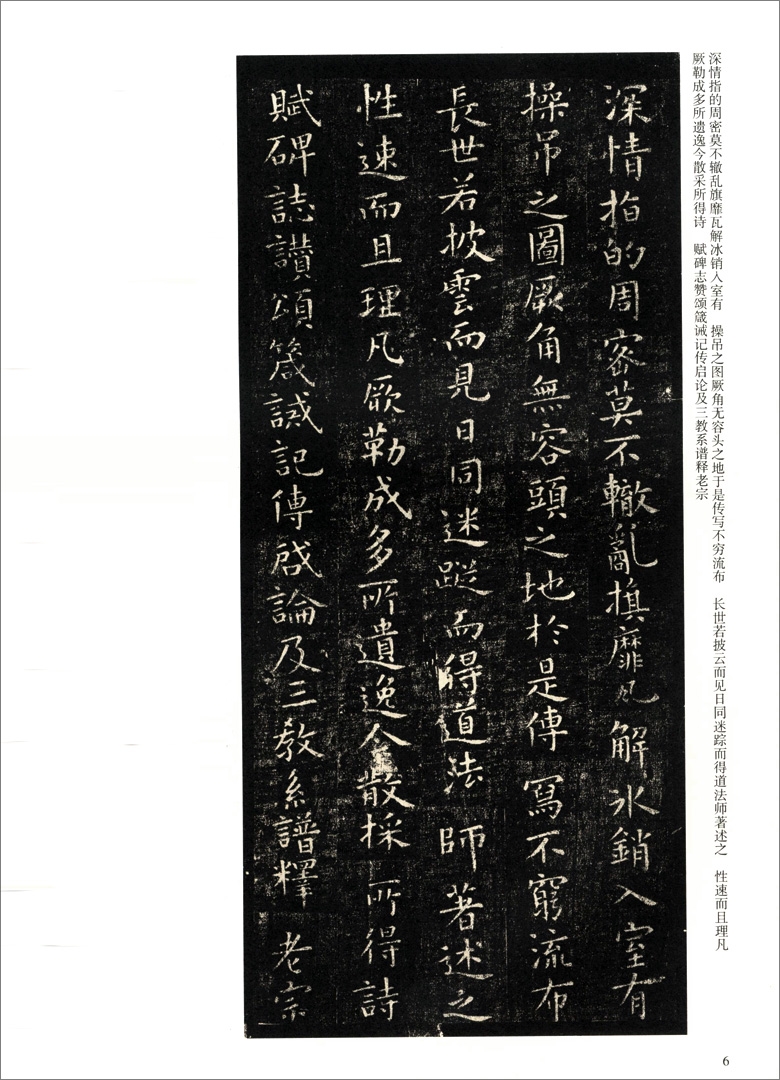 深情指的周密莫不辙乱旗靡瓦解冰销入室有　操吊之图厥角无容头之地于是传写不穷流布　长世若披云而见日同迷踪而得道法师著述之　性速而且理凡
厥勒成多所遗逸今散采所得诗　赋碑志赞颂箴诫记传启论及三教系谱释老宗
深情指的周密莫不轍亂旗靡瓦解氷銷入室有
操吊之圖厥角無容頭之地於是傳寫不窮流布
長世若披雲而見日同迷蹤而得道法師著述之
性速而且理凡厥勒成多所遺逸今散採所得詩
賦碑誌讚頌箴誡記傳啓論及三教系譜釋老宗
6